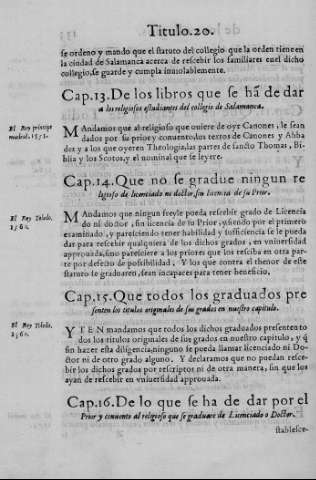 Titulo.20.
se ordeno y mando que el statuto del collegio que la orden tiene en
la ciudad de Salamanca acerca de rescebir los familiares en el dicho
collegio, se guarde y cumpla inuiolablemente.
Cap.13. De los libros que se hã de dar
a los religiosos estudiantes del collegio de Salamanca.
El Rey principe
madrid. 1551.
Mandamos que al religioso que uuiere de oyr Canones, le sean
dados por su prior y conuento los textos de Canones y Abba
des y a los que oyeren Theologia, las partes de sancto Thomas, Bi
blia y los Scotos, y el nominal que se leyere.
Cap.14. Que no se gradue ningun re
ligioso de licenciado ni doctor, sin licencia de su Prior.
El Rey Toledo.
1560.
Mandamos que ningun freyle pueda rescebir grado de Licencia
do ni doctor, sin licencia de su Prior, y siendo por el primero
examinado, y paresciendo tener habilidad y sufficiencia se le pueda
dar para rescebir qualquiera de los dichos grados, en vniuersidad
approuada, sino paresciere a los priores que los rescibã en otra par
te por defecto de possibilidad, Y los que contra el thenor de este
statuto se graduaren, sean incapaces para tener beneficio.
Cap.15. Que todos los graduados pre
senten los titulos originales de sus grados en nuestro capitulo.
El Rey Toledo.
1560.
YTEN mandamos que todos los dichos graduados presenten to
dos los titulos originales de sus grados en nuestro capitulo, y q̃
sin hazer esta diligencia, ninguno se pueda llamar licenciado ni Do-
ctor ni de otro grado alguno, Y declaramos que no puedan resce-
bir los dichos grados por rescriptos ni de otra manera, sin que los
ayan de rescebir en vniuersidad approuada.
Cap.16. De lo que se ha de dar por el
Prior y conuento al religioso que se graduare de Licenciado o Doctor.
stablesce-